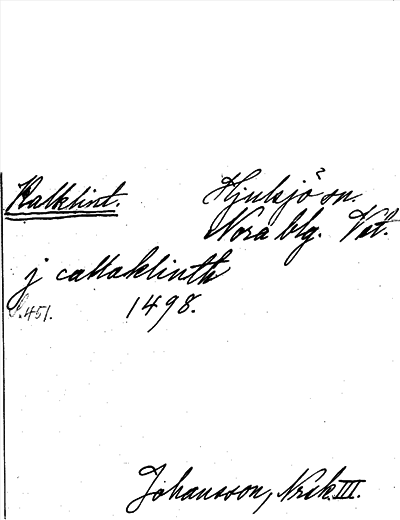 Kalklint.
Hjulsjö sn.
Nora blg. Vst.
j callaklinth
S. 451.
1498.
Johansson, Nrsk. III.